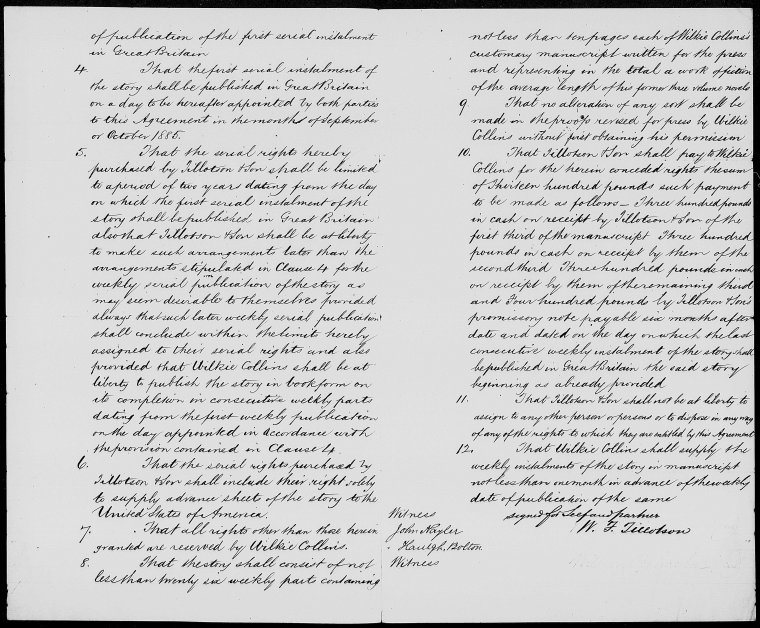 of publication of the first serial instalment
in Great Britain
4. That the first serial instalment of
the story shall be published in Great Britain
on a day to be hereafter appointed by both parties
to this Agreement in the months of September
or October 1885.
5. That the serial rights hereby
purchased by Tillotson & Son shall be limited
to a period of two years dating from the day
on which the first serial instalment of the
story shall be published in Great Britain
also that Tillotson & Son shall be at liberty
to make such arrangements later than the
arrangements stipulated in Clause 4 for the
weekly serial publication of the story as
may seem desirable to themselves provided
always that such later weekly serial publication
shall conclude within the limits hereby
assigned to their serial rights and also
provided that Wilkie Collins shall be at
liberty to publish the story in book form on
its completion in consecutive weekly parts
dating from the first weekly publication
on the day appointed in accordance with
the provision contained in Clause 4.
6. That the serial rights purchased by
Tillotson & Son shall include their right solely
to supply advance sheets of the story to the
United States of America.
7. That all rights other than those herein
granted are reserved by Wilkie Collins.
8. That the story shall consist of not
less than twenty six weekly parts containing
not less than ten pages each of Wilkie Collins's
customary manuscript written for the press
and representing in the total a work of fiction
of the average length of his former three volume novels
9 That no alteration of any sort shall be
made in the proofs revised for press by Wilkie
Collins without first obtaining his permission
10. That Tillotson & Son shall pay to Wilkie
Collins for the herein conceded rights the sum
of Thirteen hundred pounds such payment
to be made as follows – Three hundred pounds
in cash on receipt by Tillotson & Son of the
first third of the manuscript Three hundred
pounds in cash on receipt by them of the
second third Three hundred pounds in cash
on receipt by them of the remaining third
and Four hundred pounds by Tillotson & Son's
promissory note payable six months after
date and dated on the day on which the last
consecutive weekly instalment of the story shall
be published in Great Britain the said story
beginning as already provided
11. That Tillotson & Son shall not be at liberty to
assign to any other person or persons or to dispose in any way
of any of the rights to which they are entitled by this Agreement
12. That Wilkie Collins shall supply the
weekly instalments of the story in manuscript
not less than one month in advance of the weekly
date of publication of the same
signed for Self and partner
W. F. Tillotson
Witness
John Nayler
Haulgh, Bolton
Witness